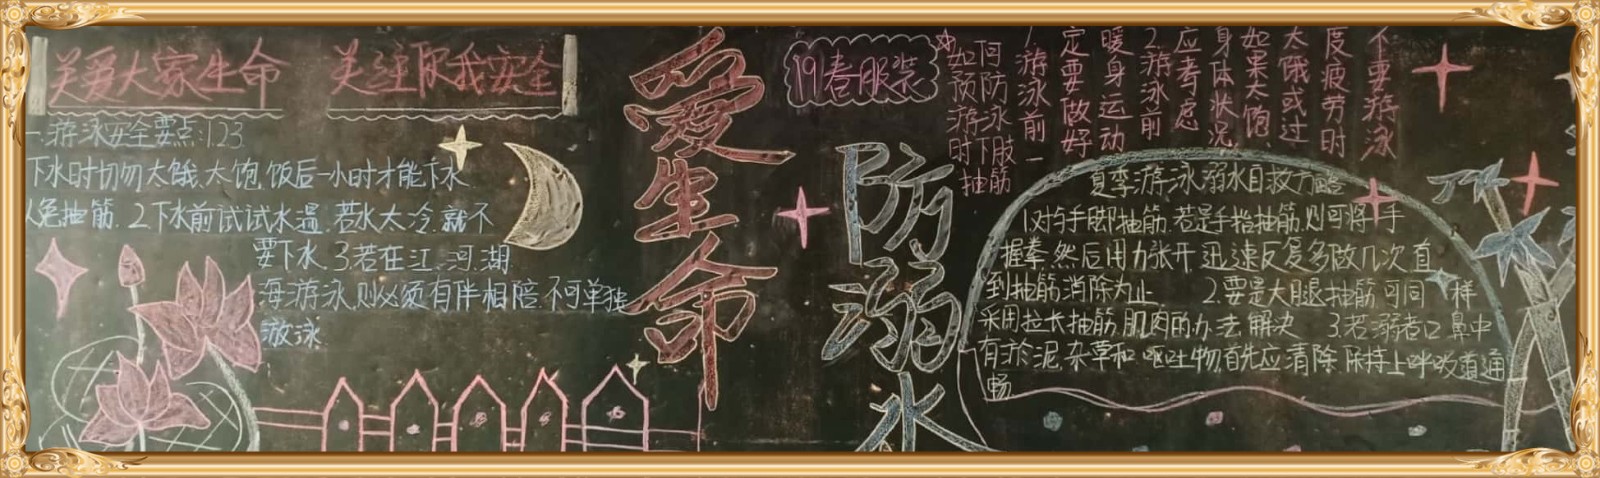 关爱大家生命 关注你我安全
一.游泳安全要点:1.2.3
下水时切勿太饿、太饱.饭后一小时才能下水
以免抽筋.2.下水前试试水温.若水太冷就不
要下水.3.若在江、河、湖
海游泳,则必须有伴相陪.不可单独
游泳
爱生命
防溺水
19春服装
如何预防游泳时下肢抽筋
1.游泳前一
定要做好
暖身运动
2.游泳前
应考虑
身体状况,
如果太饱、
太饿或过
度疲劳时
不要游泳
夏季游泳溺水自救方略
1.对与手脚抽筋.若是手指抽筋,则可将手
握拳,然后用力张开,迅速反复多做几次,直
到抽筋消除为止. 2.要是大腿抽筋,可同样
采用拉长抽筋肌肉的办法解决 3.若溺者口鼻中
有淤泥、杂草和呕吐物,首先应清除,保持上呼吸道通
畅